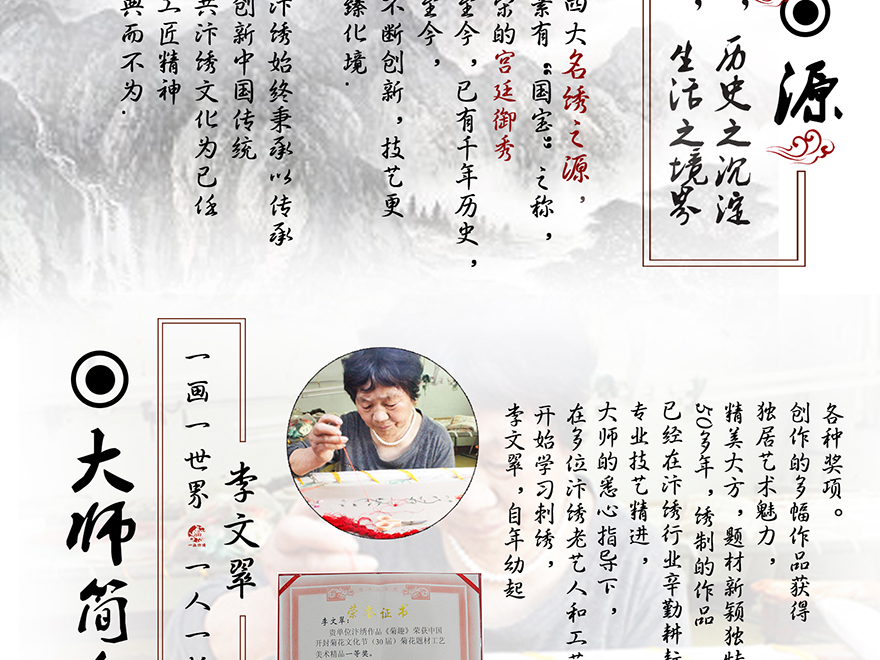 源
，历史之沉淀
，生活之境界
四大名绣之源，
素有“国宝”之称，
宋的宫廷御秀
至今，已有千年历史，
至今，
不断创新，技艺更
臻化境.
汴绣始终秉承以传承
创新中国传统
共汴绣文化为已任
工匠精神
典而不为.
大师简
一画一世界
一人一
李文翠
李文翠，自年幼起
开始学习刺绣，
在多位汴绣老艺人和工艺
大师的悉心指导下，
专业技艺精进，
已经在汴绣行业辛勤耕耘
50多年，绣制的作品
精美大方，题材新颖独特
独居艺术魅力，
创作的多幅作品获得
各种奖项。
荣誉证书
李文翠：
贵单位汴绣作品《菊趣》荣获中国
开封菊花文化节（30届）菊花题材工艺
美术精品一等奖。